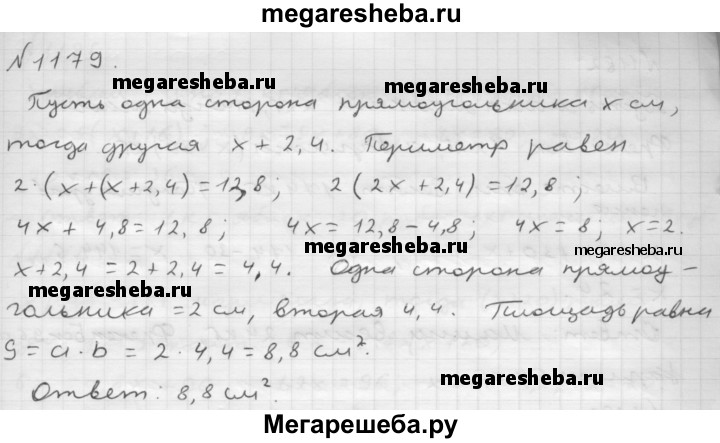 megaresheba.ru
№ 1179.
megaresheba.ru
megaresheba.ru
Пусть одна сторона прямоугольника x см,
тогда другая x + 2,4. Периметр равен
2·(x+(x+2,4)=12,8; 2(2x+2,4)=12,8;
4x + 4,8 = 12,8; 4x = 12,8-4,8; 4x = 8; x=2.
megaresheba.ru
megaresheba.ru
x+2,4 = 2+2,4 = 4,4. Одна сторона прямоу-
megaresheba.ru
гольника = 2 см, вторая 4,4. Площадь равна
S = a·b = 2·4,4 = 8,8 см².
megaresheba.ru
Ответ: 8,8 см².
Мегарешеба.ру